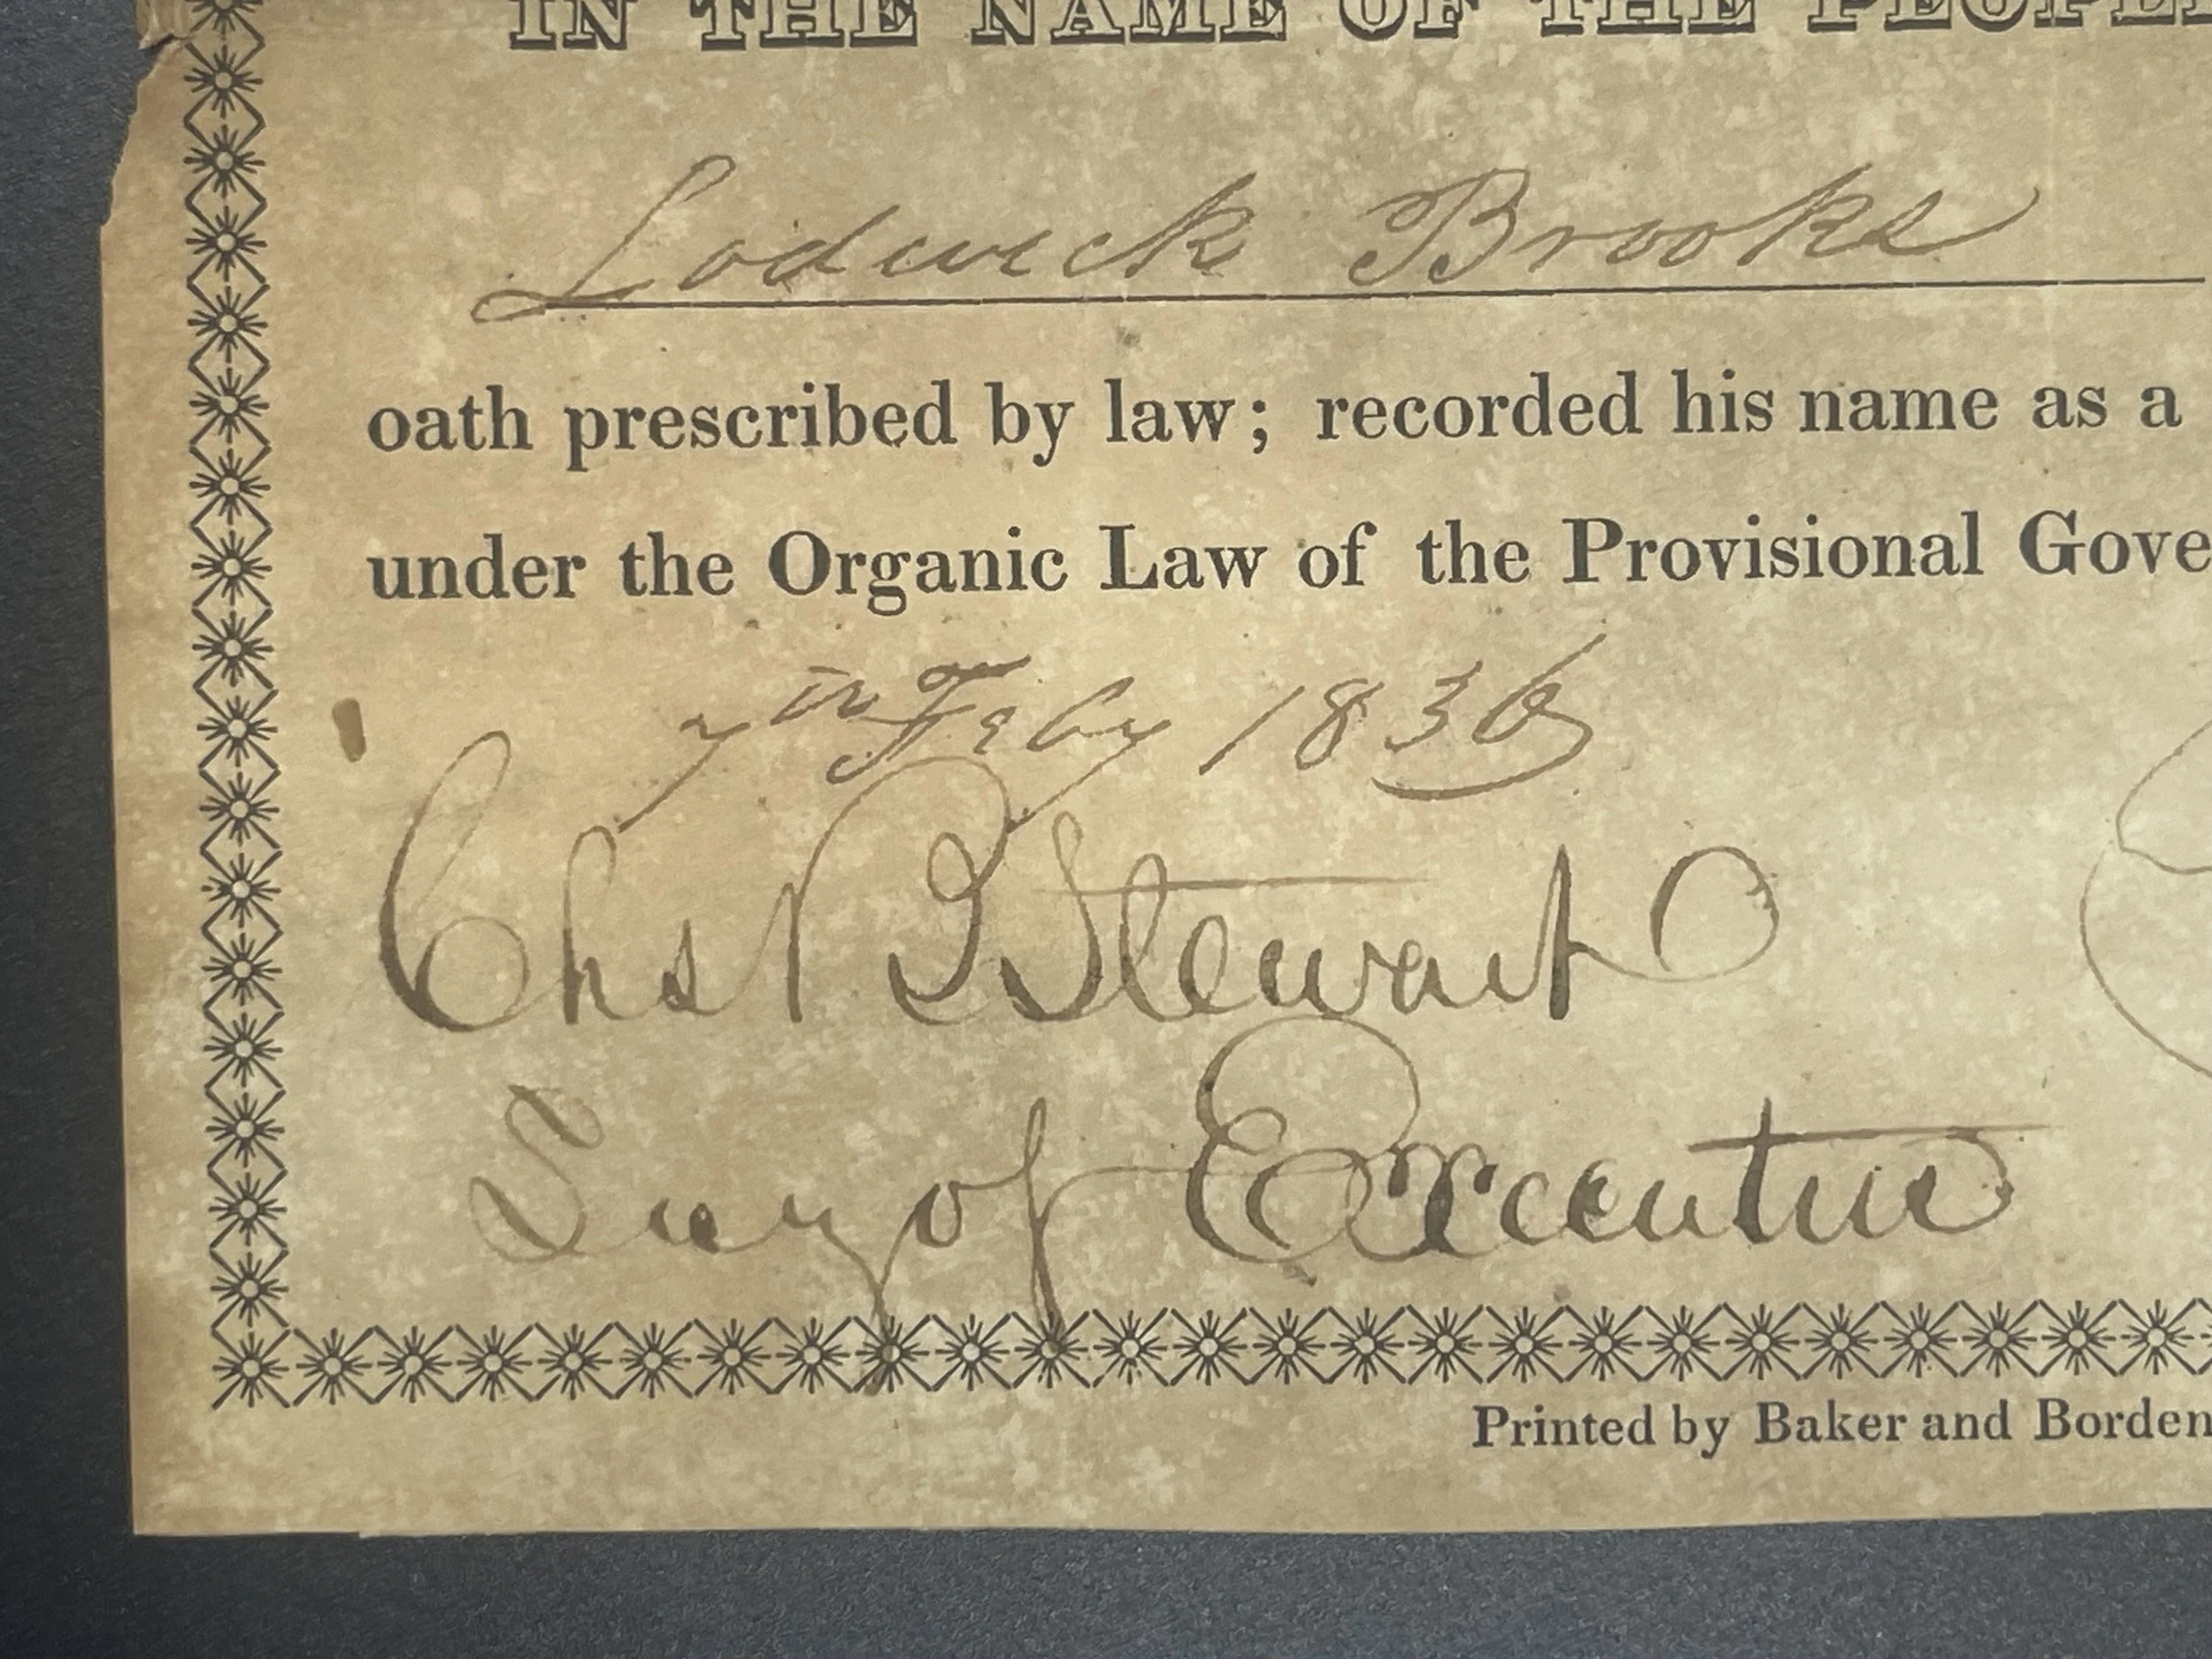 IN THE NAME OF THE PEOPLE
Lodwick Brooks
oath prescribed by law; recorded his name as a
under the Organic Law of the Provisional Gove
7th Feby 1836
Chas B Stewart
Secy of Executive
Printed by Baker and Borden